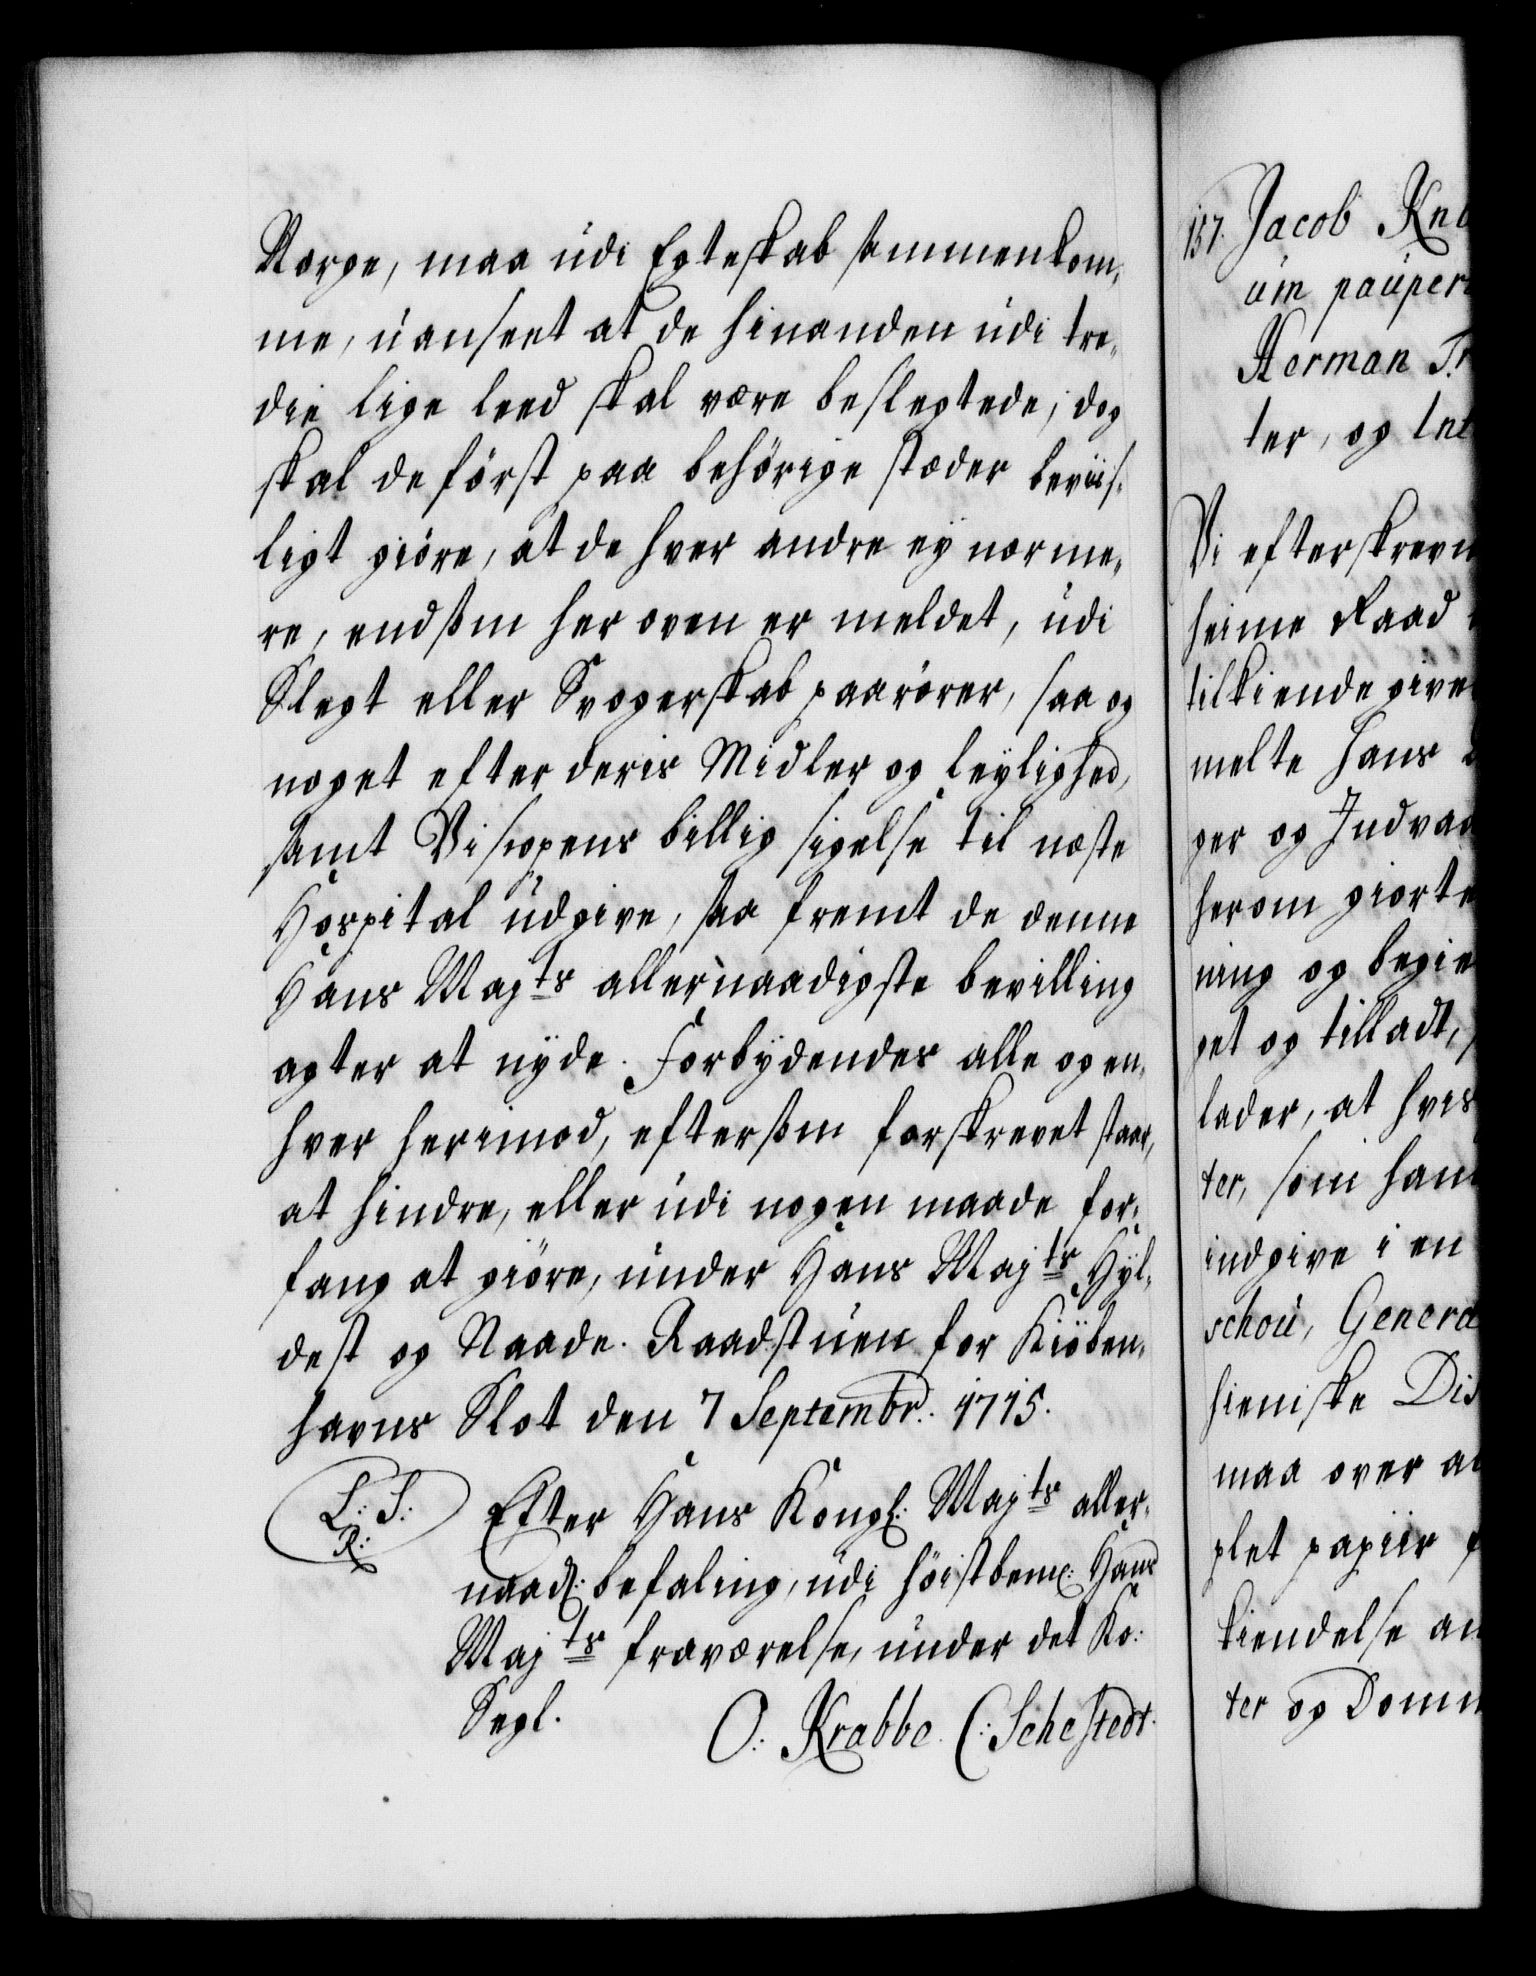 Norge, maa udi Egteskab sammenkom-
me, uanseet at de hinanden udi tre-
die lige leed skal være beslegtede, dog
skal de först paa behörige stæder beviis-
ligt giöre, at de hver andre ey nærme-
re, end som her oven er meldet, udi
Slegt eller Svogerskab paarörer, saa og
noget efter deris Midler og leylighed,
samt Biscopens billig sigelse til næste
Hospital udgive, saa fremt de denne
Hans Majts allernaadigste bevilling
agter at nyde. Forbydendes alle og en-
hver herimod, eftersom forskrevet staar,
at hindre, eller udi nogen maade for-
fang at giöre, under Hans Majts Hyl-
dest og Naade. Raadstuen for Kiöben-
havns Slot den 7 Septembr. 1715.
L: S:
R:
Efter Hans Kongl: Majts aller-
naad: befaling, udi höistbem: Hans
Majts fraværelse, under det Ko:
Segl.
O: Krabbe. C: Sehestedt.
157. Jacob Kn
um pauper
Herman Tr
ter, og Int
Vi efterskrevn
heime Raad
tilkiendegive
melte Hans
ger og Indvaa
herom giorte
ning og begie
get og tilladt,
lader, at hvis
ter, som han
indgive i en
schou, Genera
hiemske Dis
maa over a
plet papiir f
kiendelse an
ter og Domm